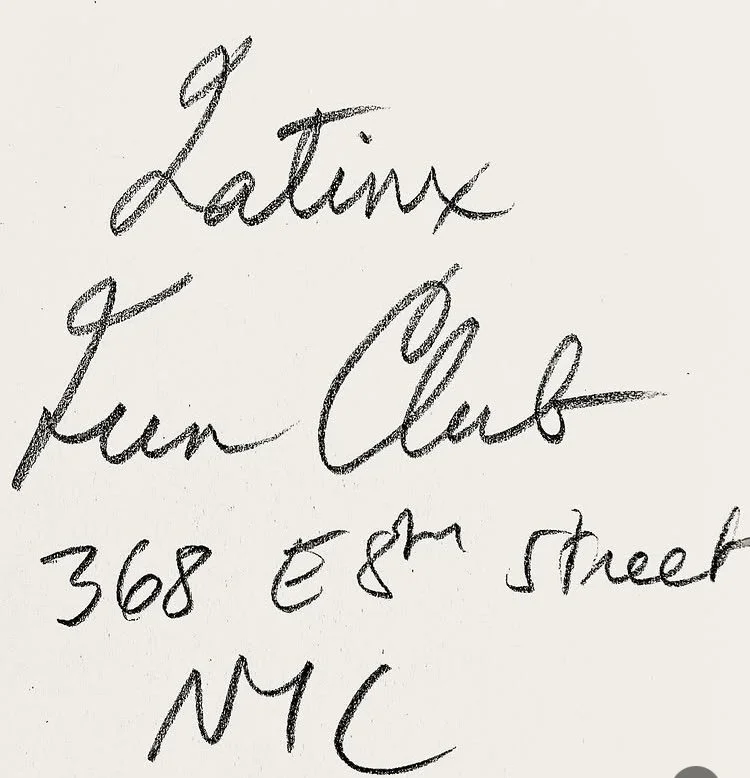 Latinx
Fun Club
368 E 8th Street
NYC